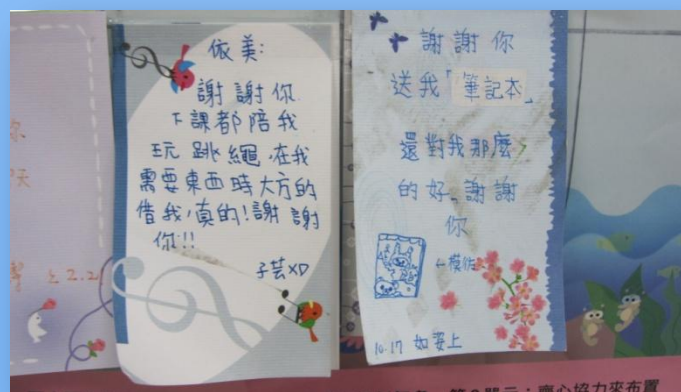 依美:
謝謝你
下課都陪我
玩跳繩,在我
需要東西時大方的
借我,真的!謝謝
你!!
子芸XD
謝謝你
送我「筆記本」
還對我那麼
的好。謝謝
你
←模仿
10.17 如姿上
第2單元:齊心協力來布置